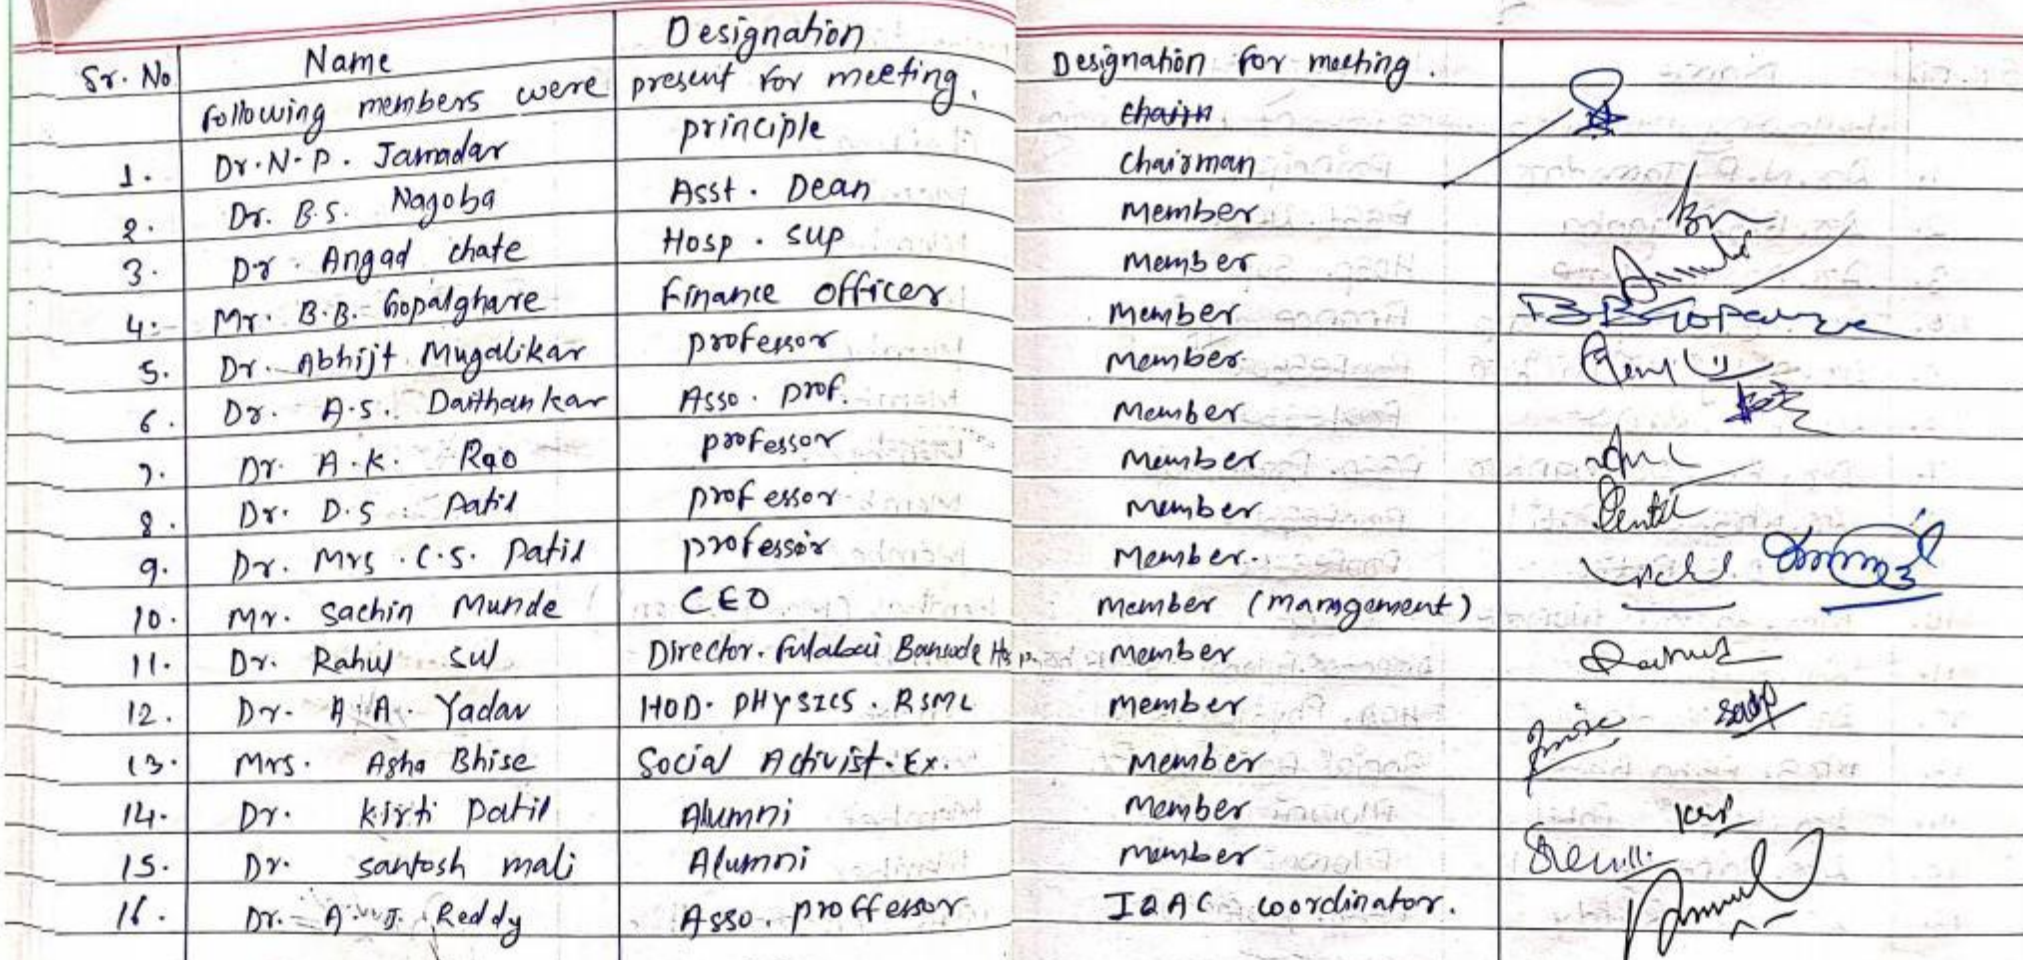 Sr. No Name Designation Designation for meeting.
following members were present for meeting.
chairn
1. Dr. N. P. Jamadar principle Chairman
2. Dr. B.S. Nagoba Asst. Dean Member
3. Dr. Angad chate Hosp. sup Member
4. Mr. B.B. Gopalghare Finance officer Member
5. Dr. Abhijt Mugalikar professor Member
6. Dr. A.S. Daithankar Asso. prof. Member
7. Dr. A.K. Rao professor Member
8. Dr. D.S. Patil professor Member
9. Dr. Mrs. C.S. Patil professor Member.
10. Mr. Sachin Munde CEO Member (Management)
11. Dr. Rahul Sul Director. Fulabai Member
12. Dr. A.A. Yadav HOD. PHYSICS. RSML Member
13. Mrs. Asha Bhise Social Activist. Ex. Member
14. Dr. kirti Patil Alumni Member
15. Dr. santosh mali Alumni Member
16. Dr. A. J. Reddy Asso. proffessor IQAC coordinator.